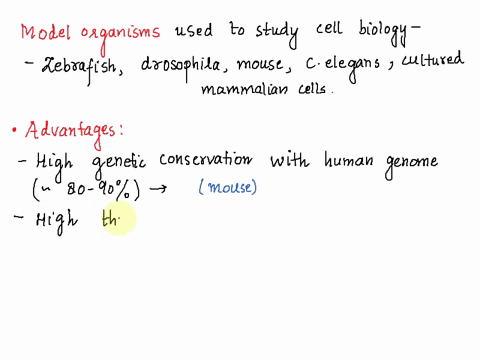 Model organisms used to study cell biology-
- Zebrafish, drosophila, mouse, C. elegans, cultured
mammalian cells.
• Advantages:
- High genetic conservation with human genome
(~ 80-90%) → (mouse)
- High th